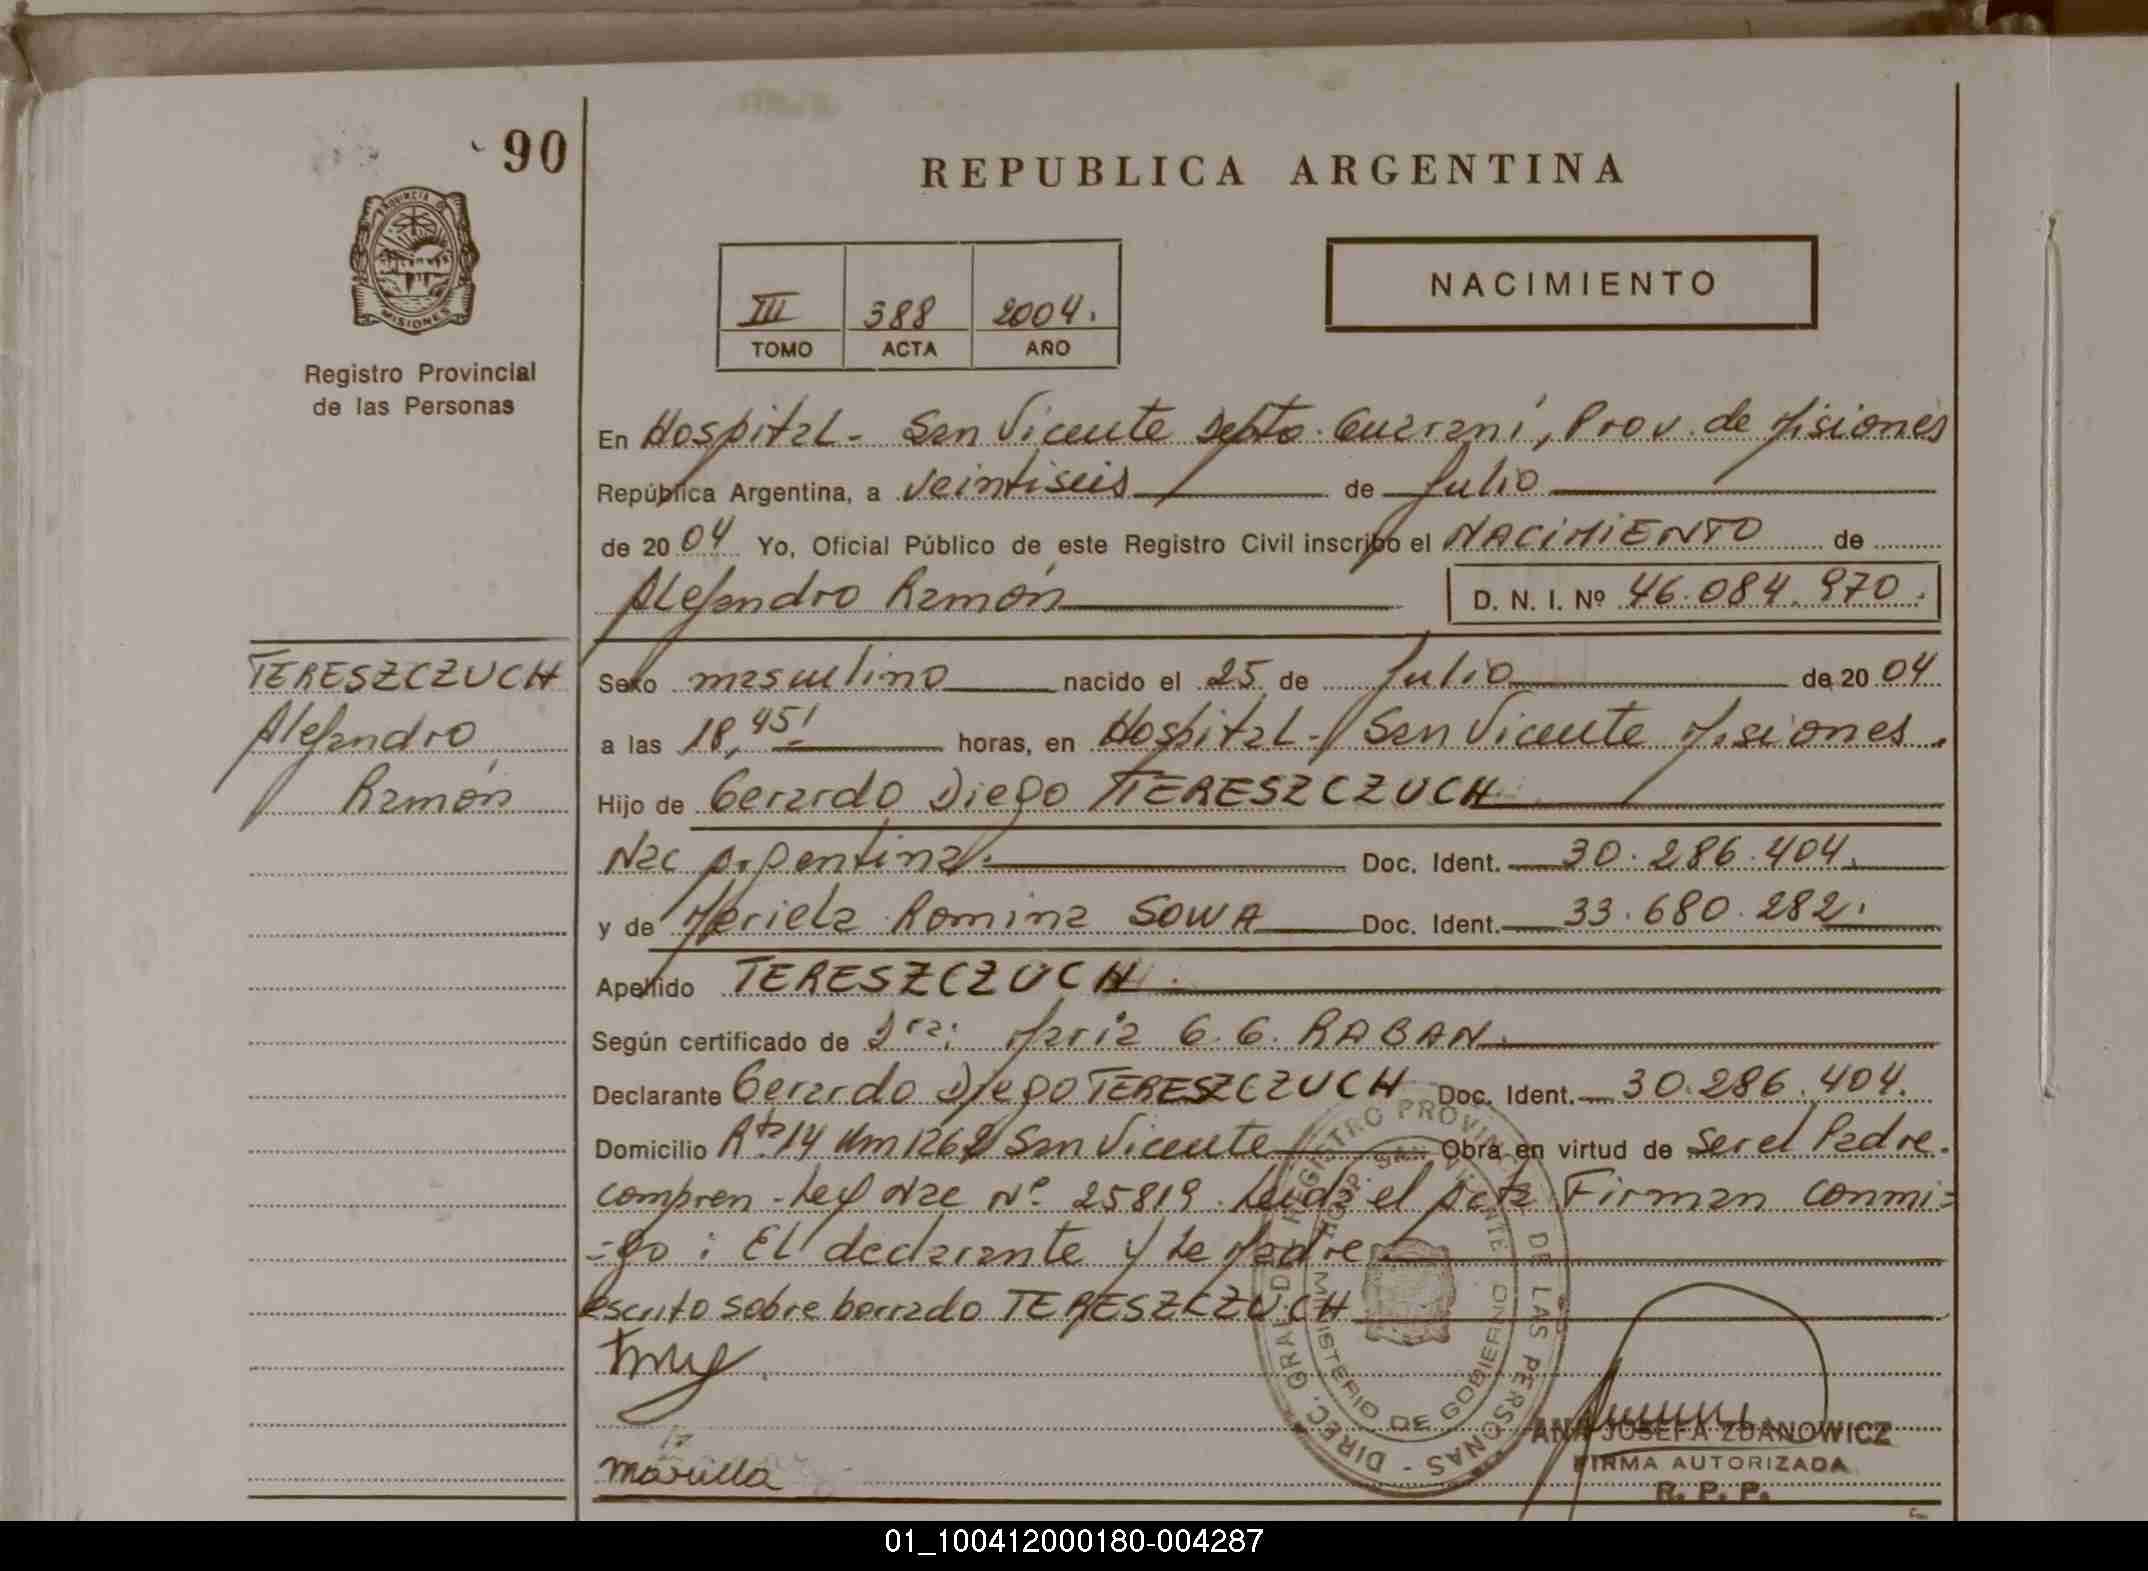 90
REPUBLICA ARGENTINA
PROVINCIA D
MISIONES
Registro Provincial
de las Personas
III 388 2004.
TOMO ACTA AÑO
NACIMIENTO
En Hospital - San Vicente Depto. Guaraní, Prov. de Misiones
República Argentina, a veintiseis de Julio
de 2004 Yo, Oficial Público de este Registro Civil inscribo el NACIMIENTO de
Alejandro Ramón D. N. I. Nº 46.084.970.
TERESZCZUCH
Alejandro
Ramón
Sexo masculino nacido el 25 de Julio de 2004
a las 18,45' horas, en Hospital - San Vicente Misiones.
Hijo de Gerardo Diego TERESZCZUCH
Nac Argentina. Doc. Ident. 30.286.404.
y de Mariela Romina SOWA Doc. Ident. 33.680.282.
Apellido TERESZCZUCH.
Según certificado de Dra: Maria G. G. RABAN.
Declarante Gerardo Diego TERESZCZUCH Doc. Ident. 30.286.404.
Domicilio Rta 14 Km 1262 San Vicente Obra en virtud de Ser el Padre.
compren - Ley Nac Nº 25819. Leida el Acta Firman conmi=
=go: El declarante y La Madre
escrito sobre borrado TERESZCZUCH
DIREC. GRAL. DE REGISTRO PROVINCIAL DE LAS PERSONAS -
HOSP. SAN VICENTE
MINISTERIO DE GOBIERNO
ANA JOSEFA ZDANOWICZ
FIRMA AUTORIZADA
R. P. P.
01_100412000180-004287